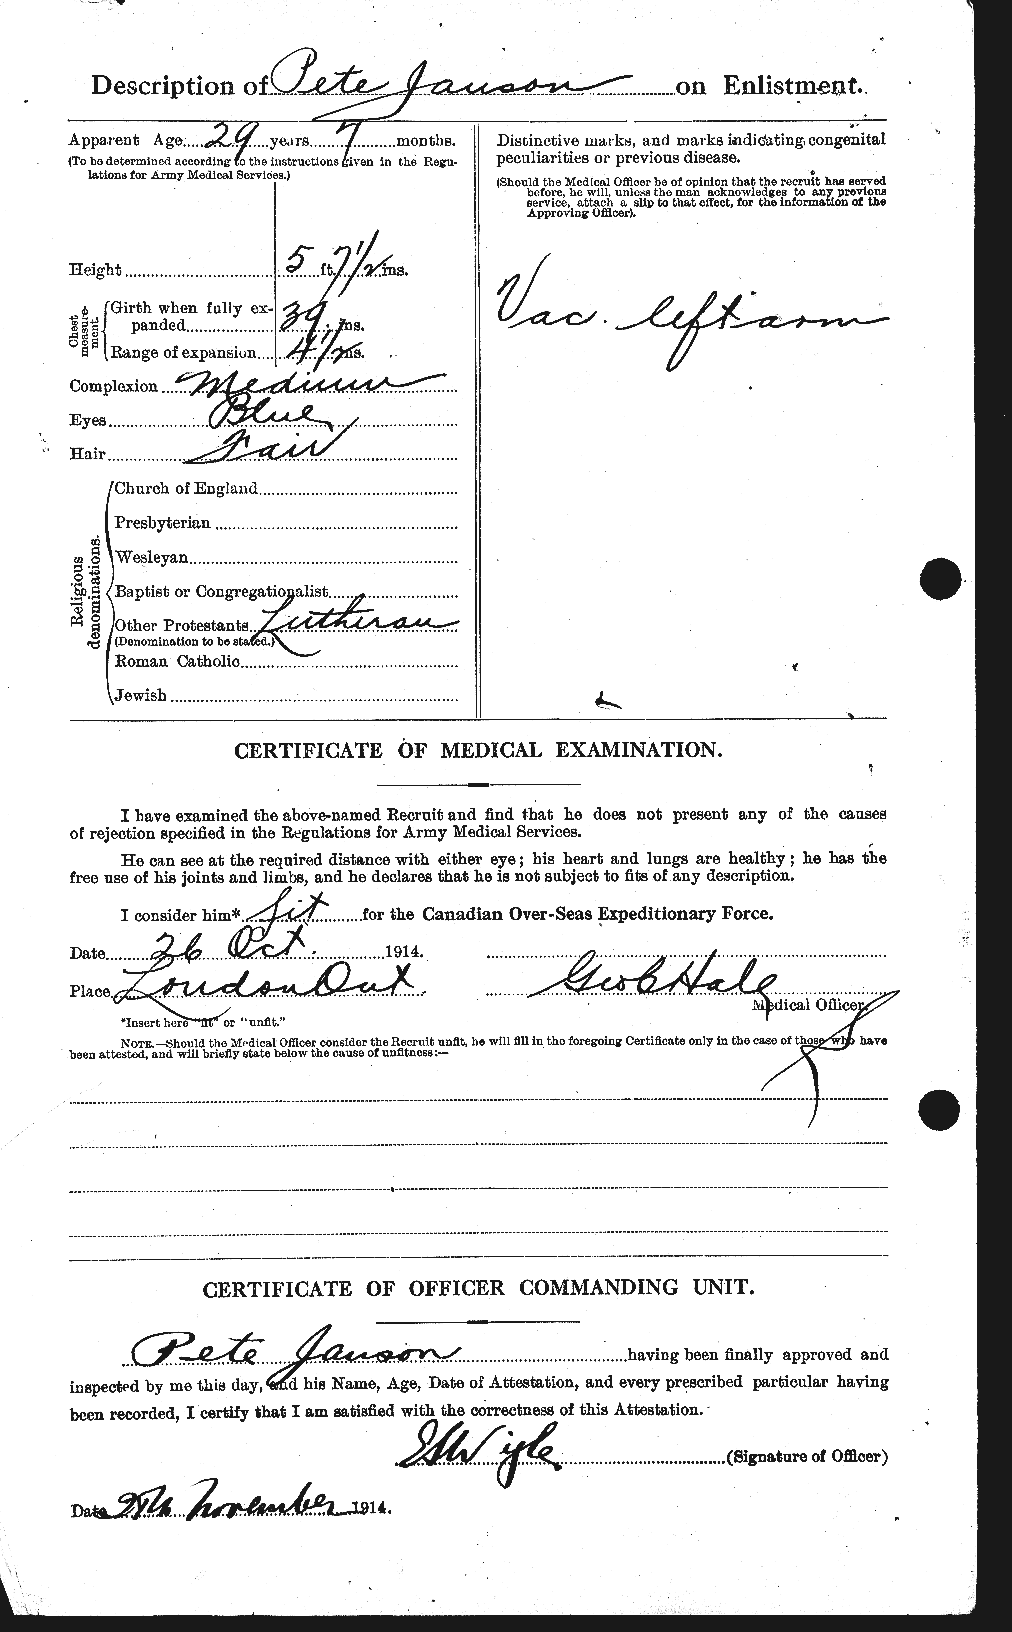 Description of Pete Janson on Enlistment.
Apparent Age 29 years 7 months.
(To be determined according to the instructions given in the Regu-
lations for Army Medical Services.)
Height 5 ft. 7 1/2 ins.
Chest measure-ment
Girth when fully ex-
panded 39 ins.
Range of expansion 4 1/2 ins.
Complexion Medium
Eyes Blue
Hair Fair
Religious denominations.
Church of England
Presbyterian
Wesleyan
Baptist or Congregationalist
Other Protestants Lutheran
(Denomination to be stated.)
Roman Catholic
Jewish
Distinctive marks, and marks indicating congenital
peculiarities or previous disease.
(Should the Medical Officer be of opinion that the recruit has served
before, he will, unless the man acknowledges to any previous
service, attach a slip to that effect, for the information of the
Approving Officer).
Vac. left arm
CERTIFICATE OF MEDICAL EXAMINATION.
I have examined the above-named Recruit and find that he does not present any of the causes
of rejection specified in the Regulations for Army Medical Services.
He can see at the required distance with either eye; his heart and lungs are healthy; he has the
free use of his joints and limbs, and he declares that he is not subject to fits of any description.
I consider him* fit for the Canadian Over-Seas Expeditionary Force.
Date 26 Oct. 1914.
Place London Ont Geo C Hale
Medical Officer.
*Insert here "fit" or "unfit."
NOTE.—Should the Medical Officer consider the Recruit unfit, he will fill in the foregoing Certificate only in the case of those who have
been attested, and will briefly state below the cause of unfitness:—
CERTIFICATE OF OFFICER COMMANDING UNIT.
Pete Janson having been finally approved and
inspected by me this day, and his Name, Age, Date of Attestation, and every prescribed particular having
been recorded, I certify that I am satisfied with the correctness of this Attestation.
Wigle (Signature of Officer)
Date November 1914.